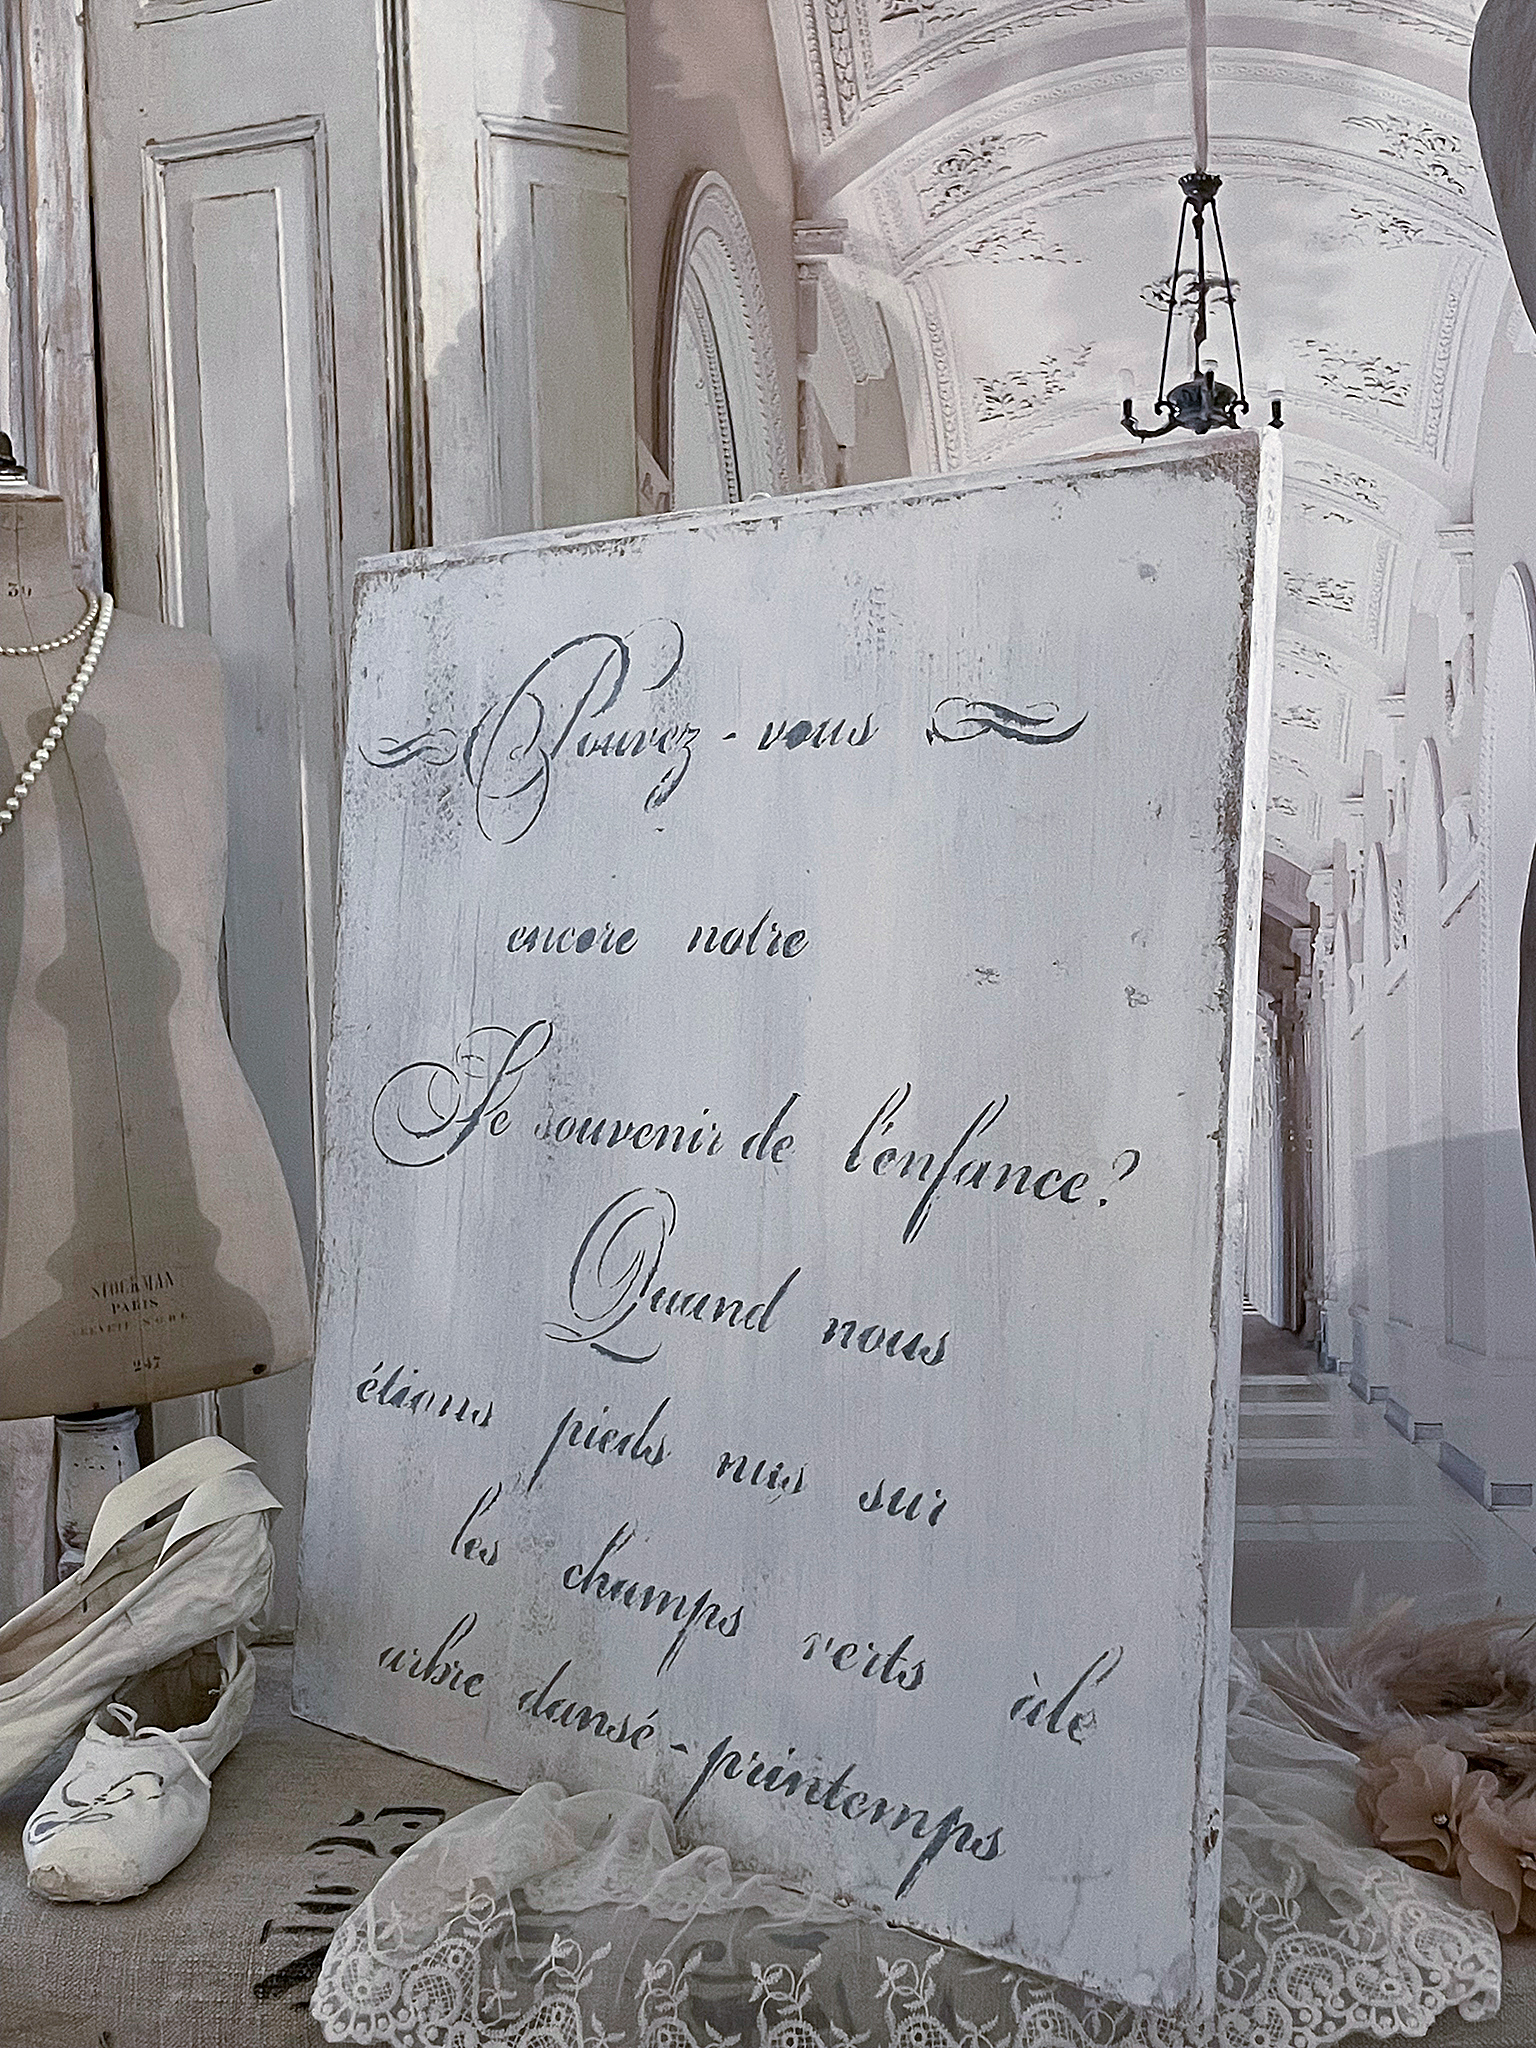 Pouvez-vous
encore notre
Se souvenir de l'enfance?
Quand nous
étions pieds nus sur
les champs verts àlé
arbre dansé-printemps
30
STOCKMAN
PARIS
BREVETÉ S.G.D.G.
247